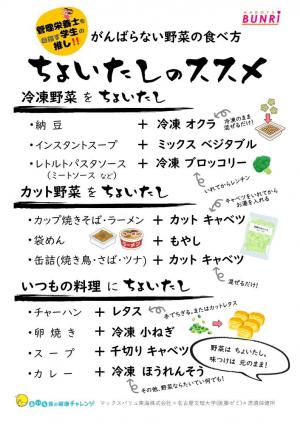 管理栄養士を
目指す学生の
推し!!
NAGOYA
BUNRI
がんばらない野菜の食べ方
ちょいたしのススメ
冷凍野菜 を ちょいたし
・納豆 + 冷凍 オクラ
冷凍のまま
混ぜるだけ!
・インスタントスープ + ミックス ベジタブル
・レトルトパスタソース + 冷凍 ブロッコリー
(ミートソース など)
いれてからレンチン
カット野菜 を ちょいたし
キャベツをいれてから
お湯を入れる
・カップ焼きそば・ラーメン + カット キャベツ
・袋めん + もやし
・缶詰(焼き鳥・さば・ツナ) + カット キャベツ
混ぜるだけ!
いつもの料理 に ちょいたし
・チャーハン + レタス
手でちぎる。またはカットレタス
・卵焼き + 冷凍 小ねぎ
・スープ + 千切り キャベツ
・カレー + 冷凍 ほうれんそう
その他、野菜ならたいてい何でも!
野菜は ちょいたし、
味つけは 元のまま!
マックスバリュ東海株式会社×名古屋文理大学